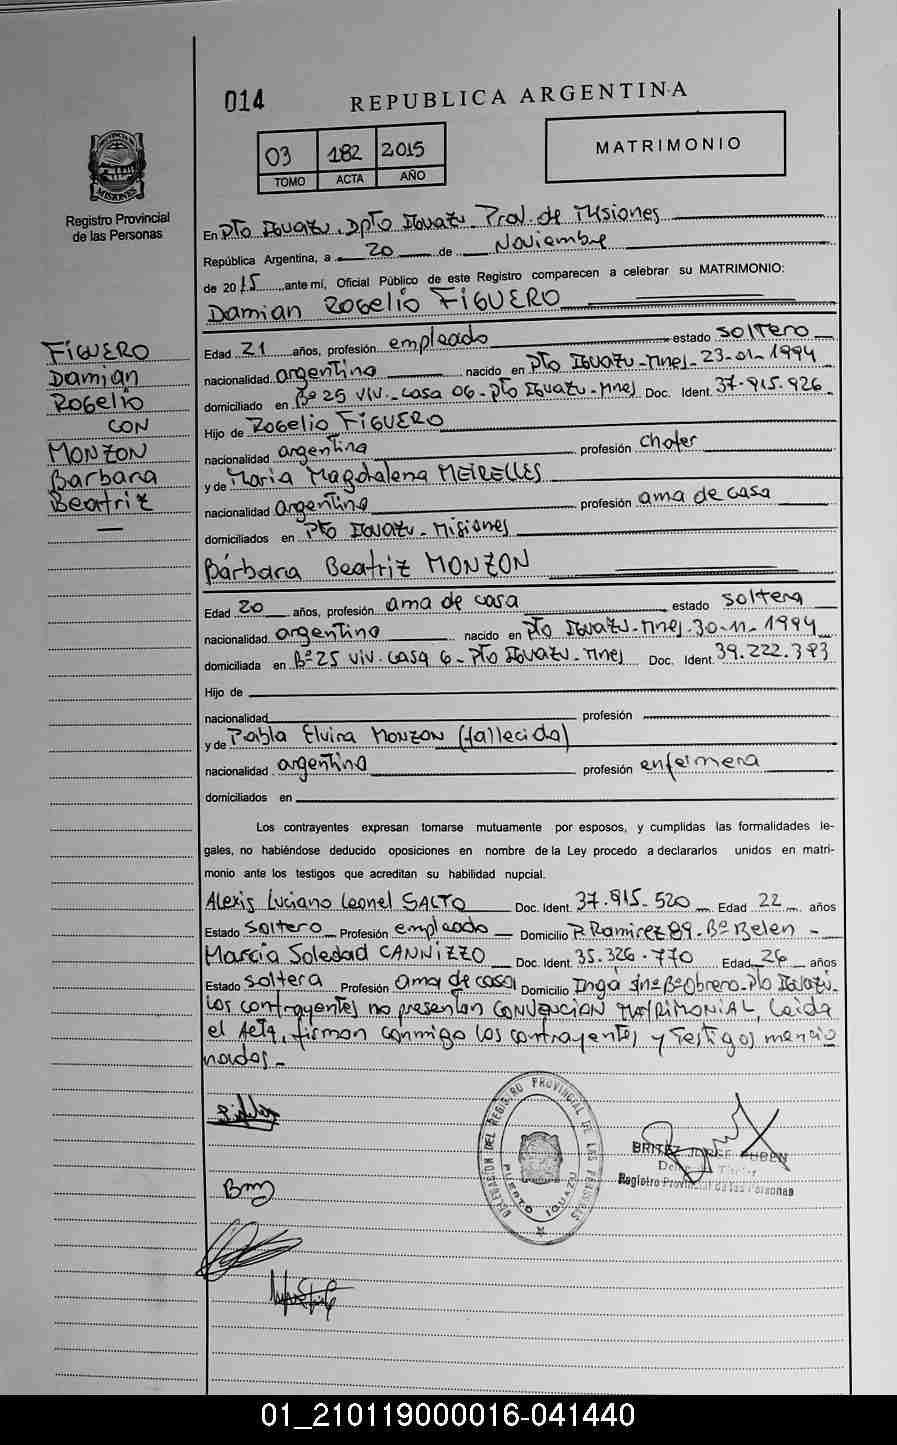 014
REPUBLICA ARGENTINA
03 182 2015
TOMO ACTA AÑO
MATRIMONIO
PROVINCIA DE
MISIONES
Registro Provincial
de las Personas
En Pto Iguazu. Dpto Iguazu. Prov. de Misiones
República Argentina, a 20 de Noviembre
de 2015 ante mí, Oficial Público de este Registro comparecen a celebrar su MATRIMONIO:
Damian Rogelio FIGUERO
FIGUERO
Damian
Rogelio
CON
MONZON
Barbara
Beatriz
Edad 21 años, profesión empleado estado soltero
nacionalidad argentina nacido en Pto Iguazu-Mnes-23-01-1994
domiciliado en Bº 25 viv.-casa 06-Pto Iguazu-Mnes Doc. Ident. 37.915.926
Hijo de Rogelio FIGUERO
nacionalidad argentina profesión chofer
y de Maria Magdalena MEIRELLES
nacionalidad argentina profesión ama de casa
domiciliados en Pto Iguazu-Misiones
Bárbara Beatriz MONZON
Edad 20 años, profesión ama de casa estado soltera
nacionalidad argentina nacido en Pto Iguazu-Mnes-30-11-1994
domiciliada en Bº 25 viv. casa 6-Pto Iguazu-Mnes Doc. Ident. 39.222.393
Hijo de
nacionalidad profesión
y de Pabla Elvira MONZON (fallecida)
nacionalidad argentina profesión enfermera
domiciliados en
Los contrayentes expresan tomarse mutuamente por esposos, y cumplidas las formalidades le-
gales, no habiéndose deducido oposiciones en nombre de la Ley procedo a declararlos unidos en matri-
monio ante los testigos que acreditan su habilidad nupcial.
Alexis Luciano Leonel SALTO Doc. Ident. 37.915-520 Edad 22 años
Estado soltero Profesión empleado Domicilio P. Ramirez 89. Bº Belen
Marcia Soledad CANNIZZO Doc. Ident. 35.326.770 Edad 26 años
Estado soltera Profesión ama de casa Domicilio Inga snº Bº Obrero-Pto Iguazu.
Los contrayentes no presentan CONVENCION MATRIMONIAL, Leida
el Acta, firman conmigo los contrayentes y Testigos mencio
nados.-
DELEGACION DEL REGISTRO PROVINCIAL DE LAS PERSONAS
PUERTO IGUAZU
BRITEZ JORGE RUBEN
Registro Provincial de las Personas
01_210119000016-041440